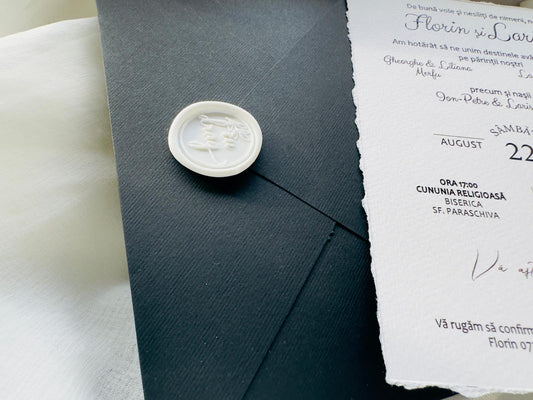 De bună voie și nesiliți de nimeni, n
Florin și Lar
Am hotărât să ne unim destinele avâ
pe părinții noștri
Gheorghe & Liliana
Morfu
precum și nașii
Ion-Petre & Loris
SÂMBĂ
AUGUST 22
ORA 17:00
CUNUNIA RELIGIOASĂ
BISERICA
SF. PARASCHIVA
Vă aș
Vă rugăm să confirm
Florin 07